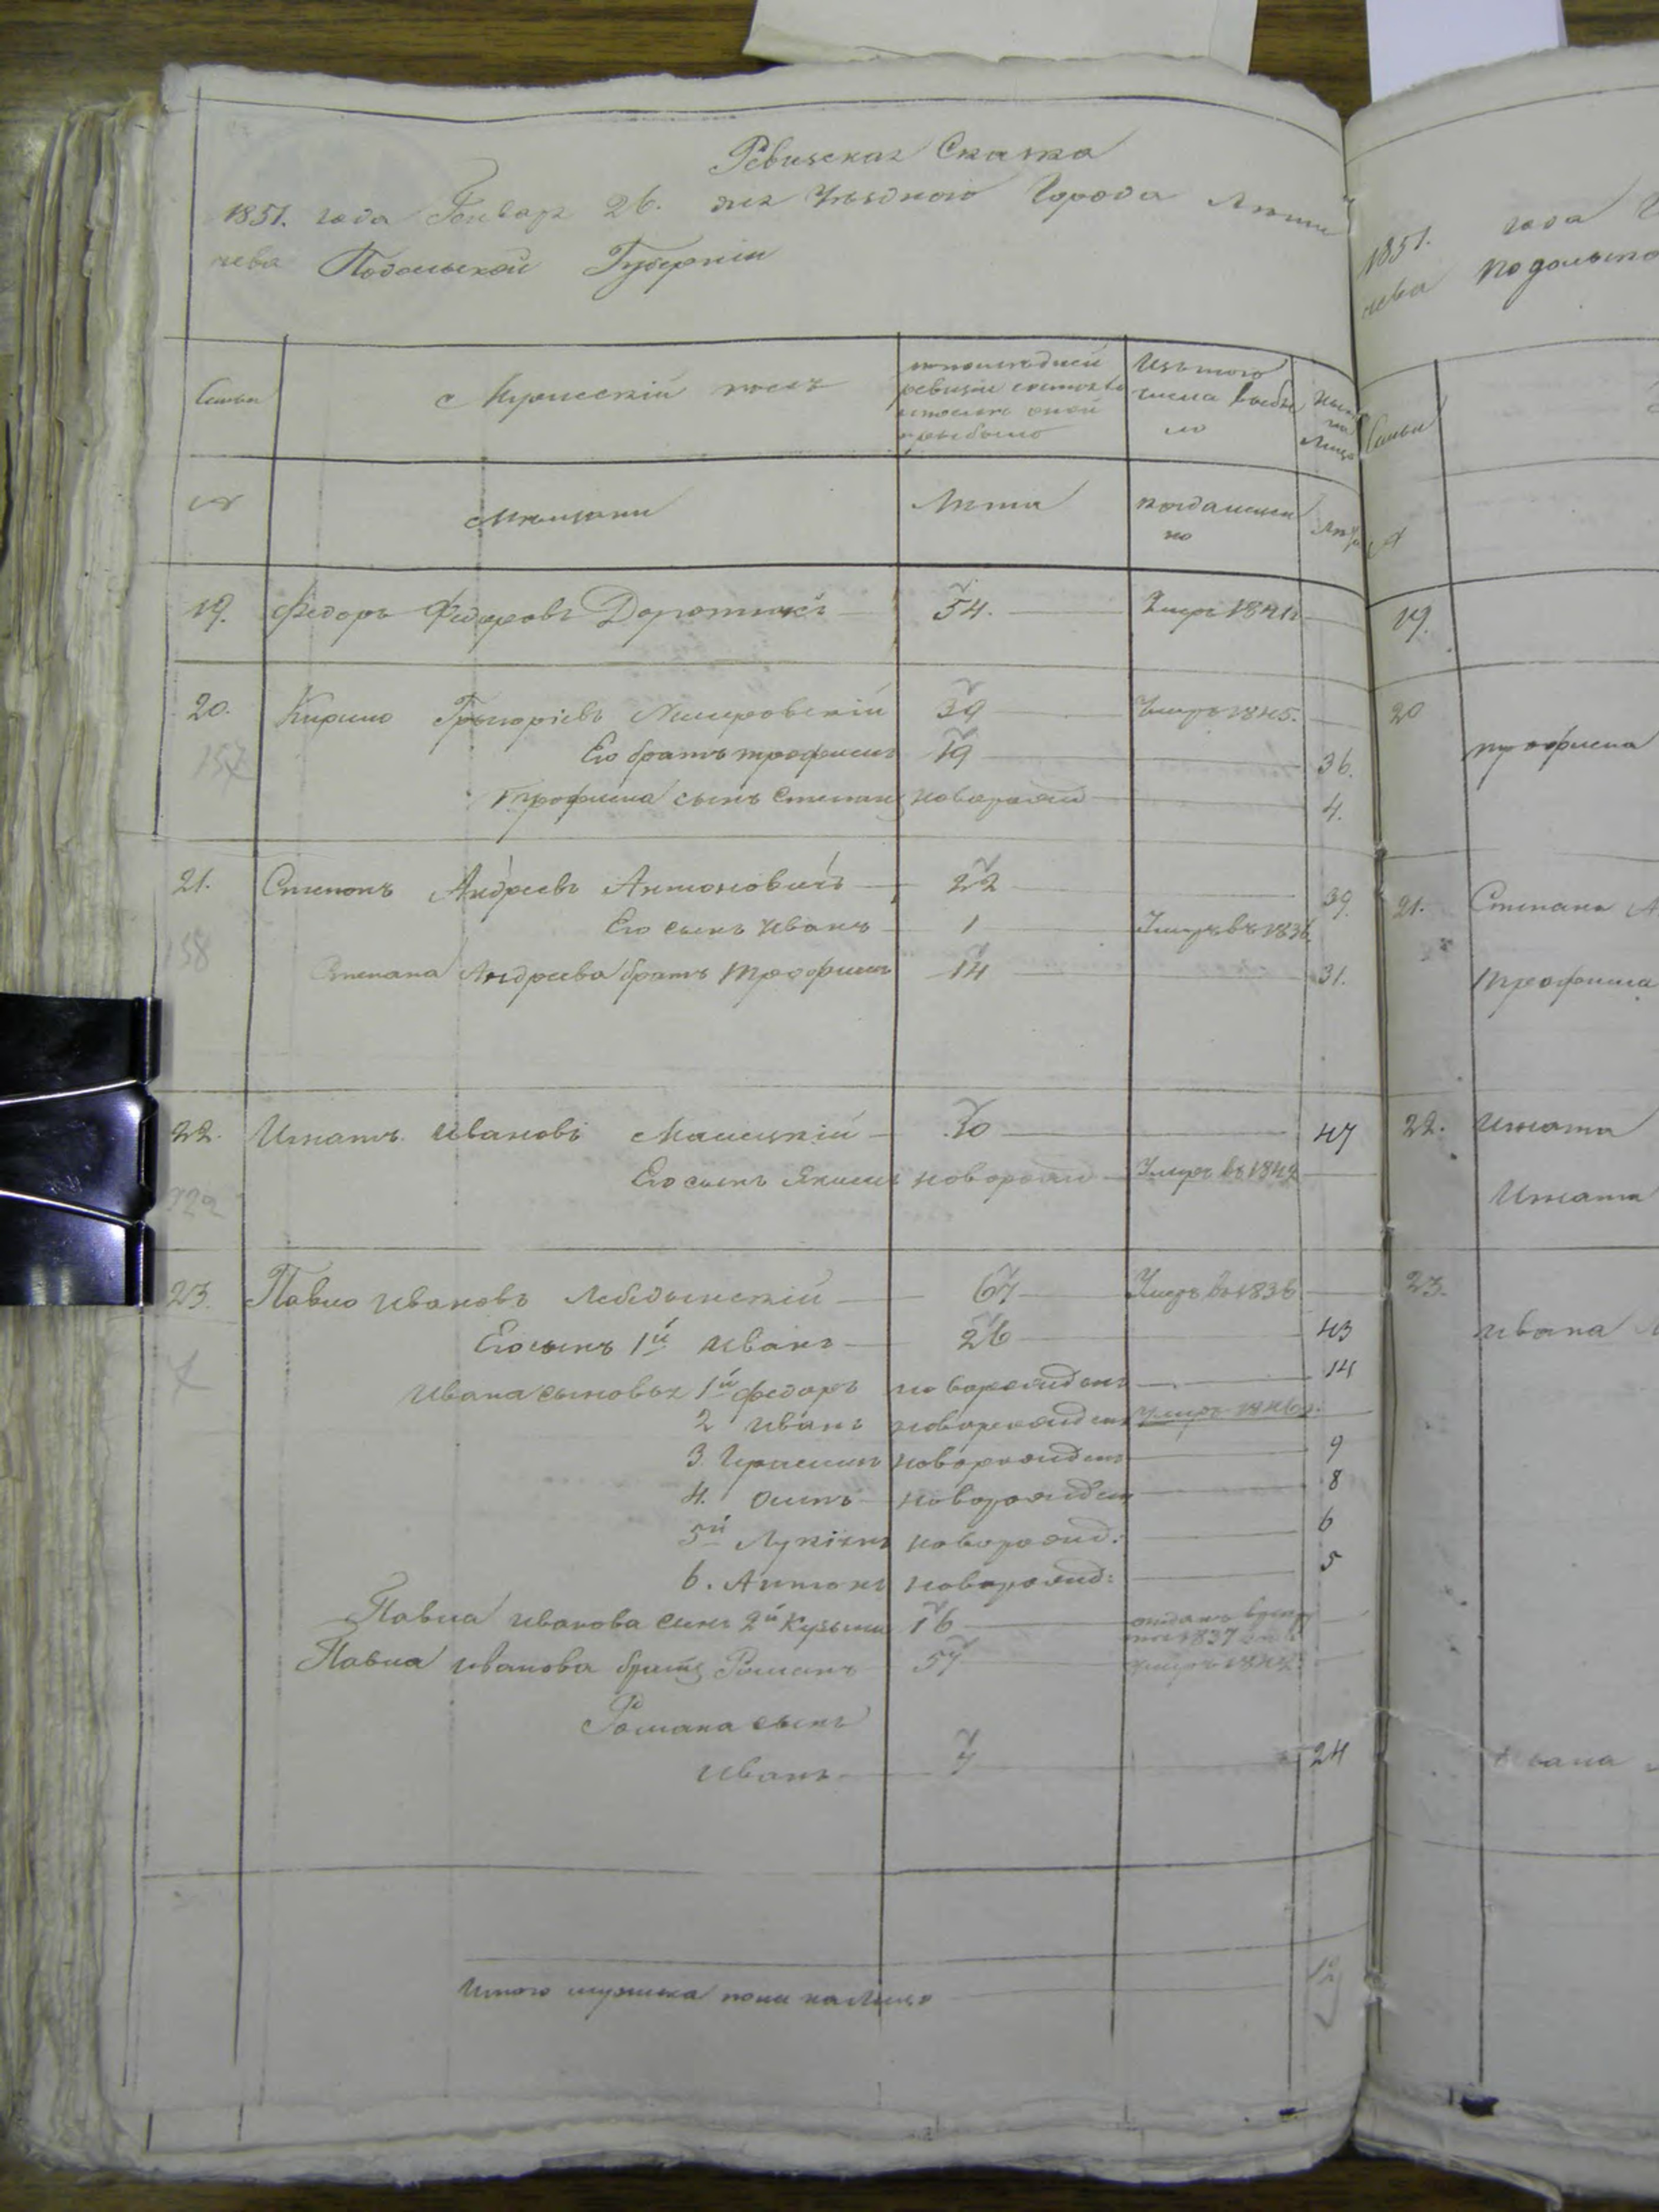 Ревизская Сказка
1851. года Генваря 26. дня Уѣзднаго Города Лети
чева Подольской Губерніи
Семьи
Мужескій полъ
по последней
ревизіи состояло
и после оной
прибыло
Изъ того
числа выбы
ло
Ныне
на
Лицо
№
Мѣщани
Лѣта
когда имен
но
Лѣта
19. Федоръ Федоровъ 54. Умеръ 1841
20. Кирило Григоріевъ Немеровскій 39 Умеръ 1845.
Его братъ Трофимъ 19 36.
157
Трофима сынъ Степанъ новорожд 4.
21. Степанъ Андреевъ Антоновичъ 22 39.
Его сынъ Иванъ 1 Умеръ въ 1836
158
Степана Андреева братъ Трофимъ 14 31.
22. Игнатъ Ивановъ 30 47
Его сынъ Якимъ новорожд Умеръ въ
23. Павло Ивановъ Лебедынскій 67 Умеръ въ 1836
Его сынъ 1й Иванъ 26 43
Ивана сыновья 1й Федоръ новорожденъ 14
2 Иванъ новорожден Умеръ 1846
3. Герасимъ новорожденъ 9
4. Осипъ новорожден 8
5й Лукіянъ новорожд: 6
6. Антонъ новорожд: 5
Павла Иванова сынъ 2й Кузьма 16 отданъ в рекру
1837
Павла Иванова братъ Романъ 57 умеръ
Романа сынъ
Иванъ 7 24
Итого мужеска пола на Лицо 12
1851. года
чева Подольско
Семьи
№
19.
20
Трофима
21. Степана А
Трофима
22. Игната
Игната
23.
Ивана
Ивана